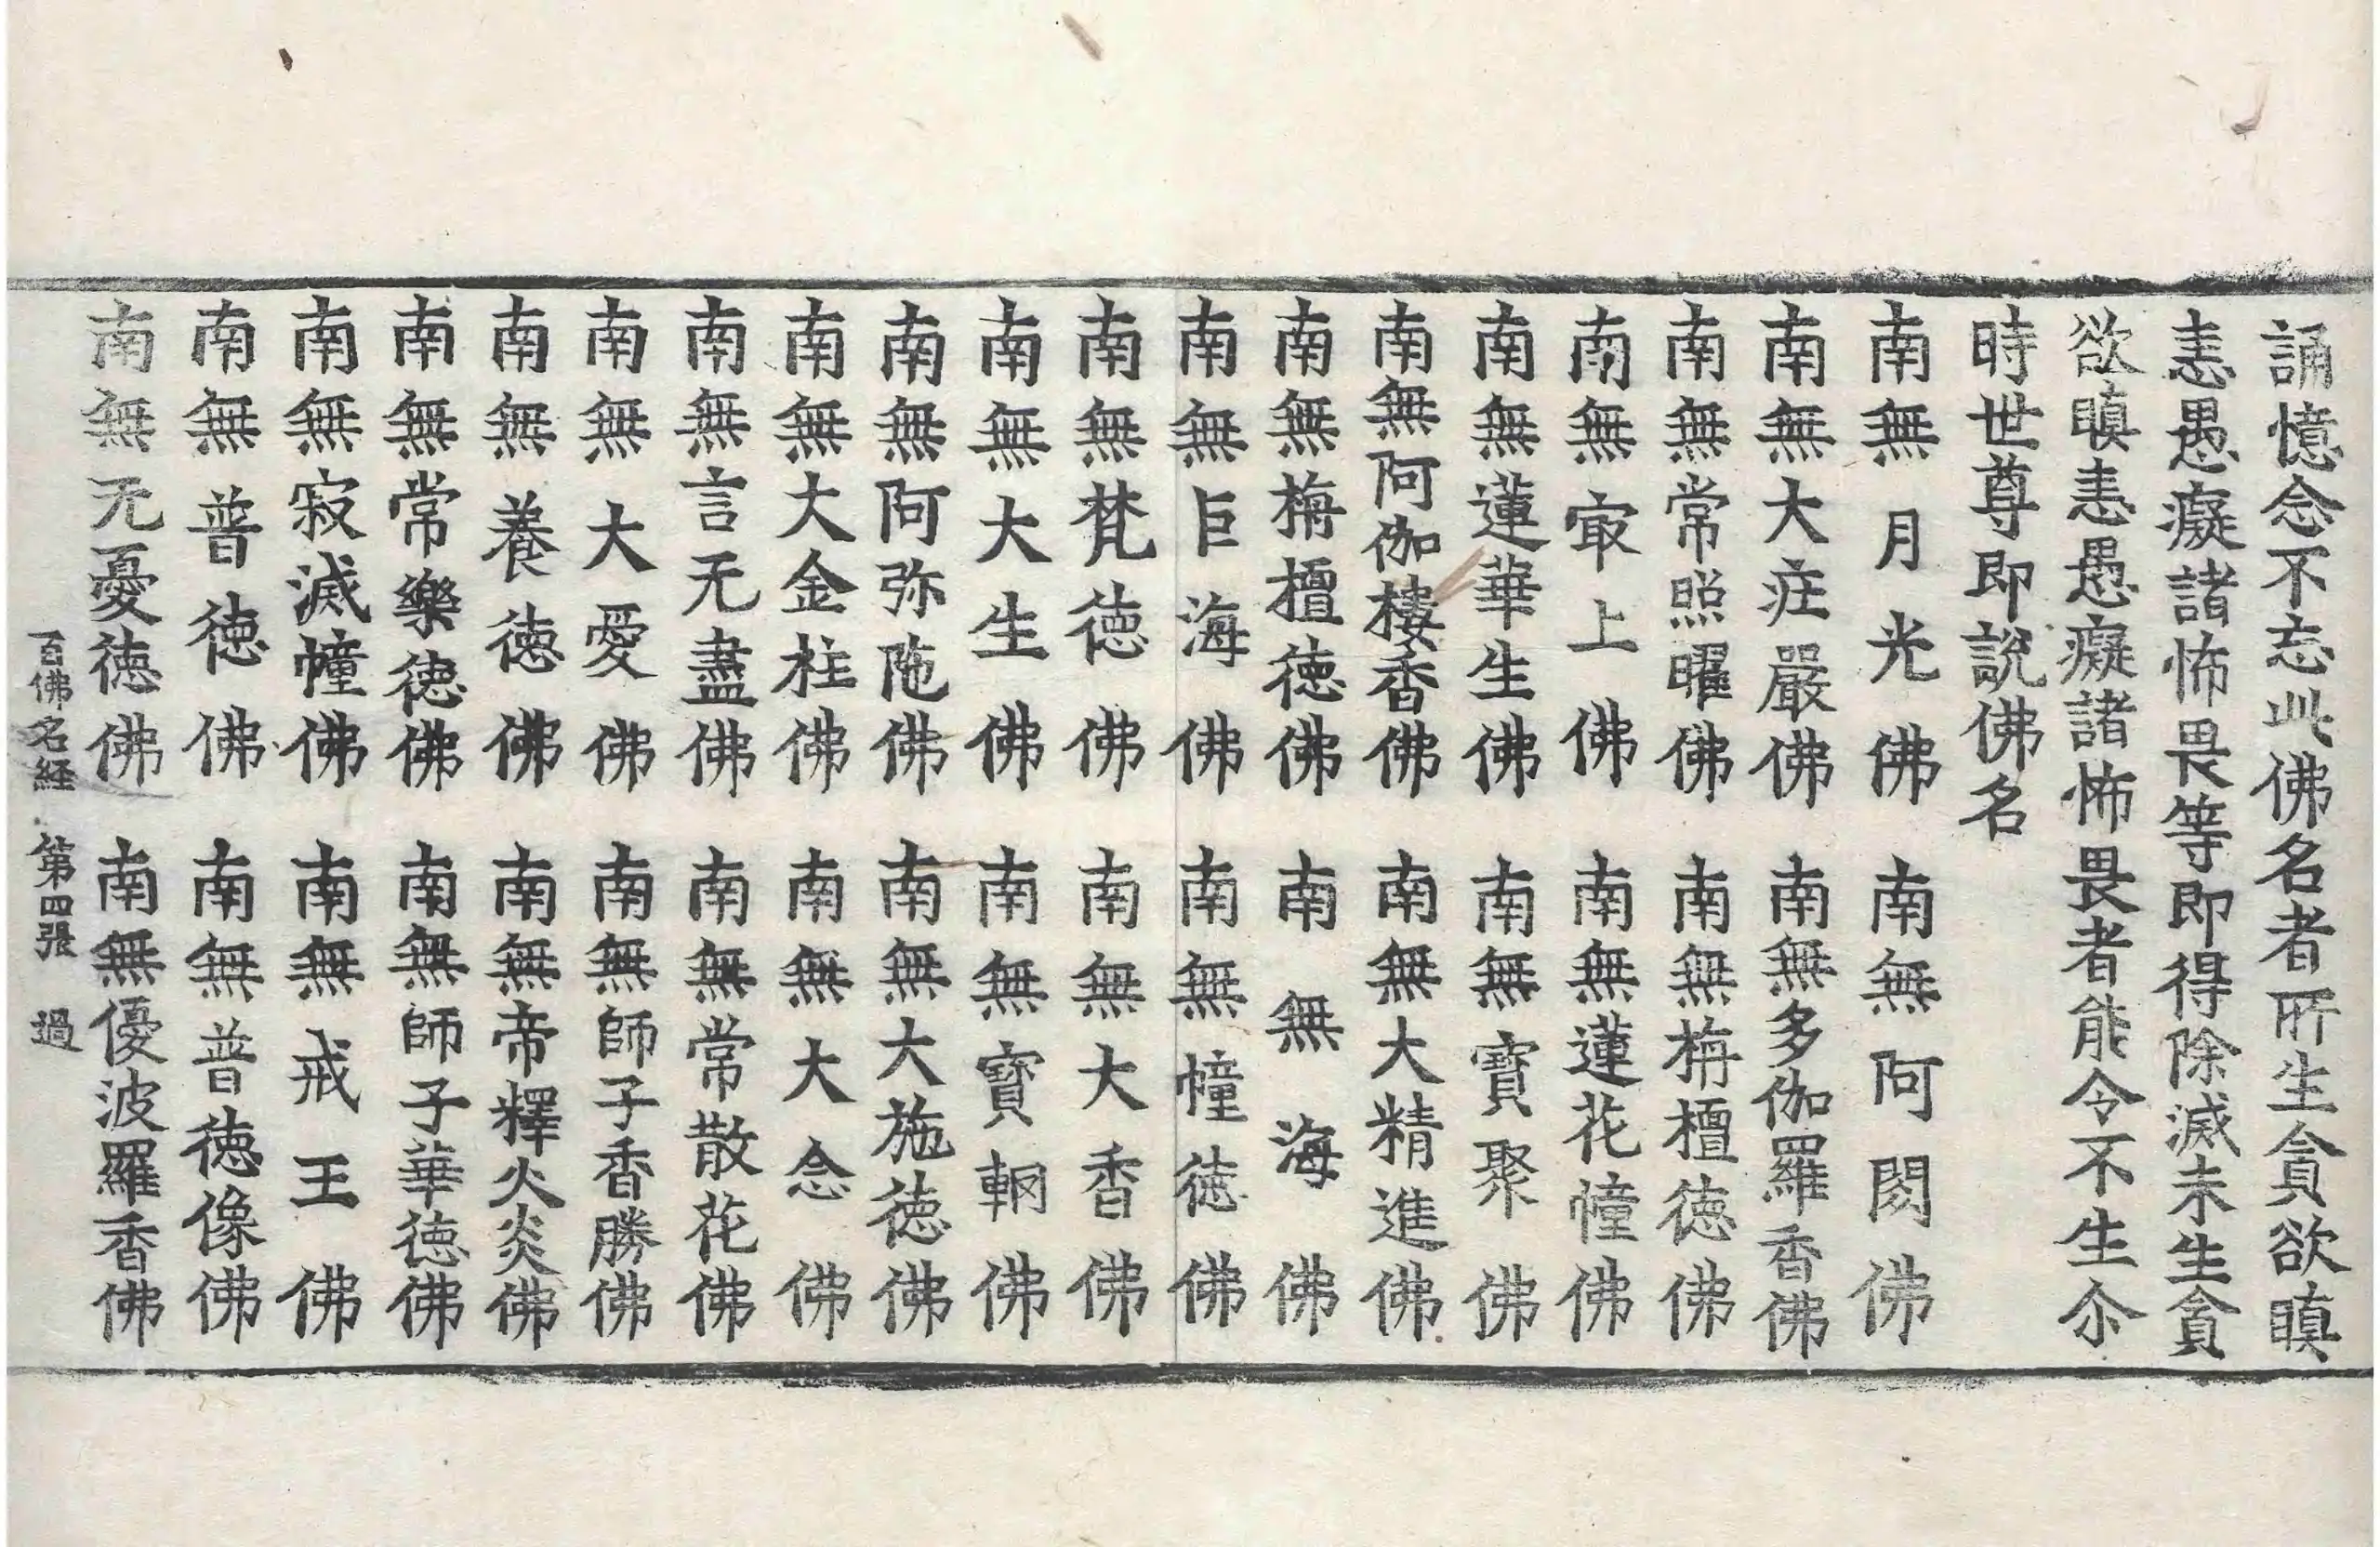 誦憶念不忘此佛名者所生貪欲瞋
恚愚癡諸怖畏等即得除滅未生貪
欲瞋恚愚癡諸怖畏者能令不生尒
時世尊即說佛名
南無月光佛　南無阿閦佛
南無大疘嚴佛　南無多伽羅香佛
南無常照曜佛　南無栴檀德佛
南無㝡上佛　南無蓮花幢佛
南無蓮華生佛　南無寶聚佛
南無阿伽樓香佛　南無大精進佛
南無栴檀德佛　南無海佛
南無巨海佛　南無幢德佛
南無梵德佛　南無大香佛
南無大生佛　南無寶輞佛
南無阿弥陁佛　南無大施德佛
南無大金柱佛　南無大念佛
南無言无盡佛　南無常散花佛
南無大愛佛　南無師子香勝佛
南無養德佛　南無帝釋火炎佛
南無常樂德佛　南無師子華德佛
南無寂滅幢佛　南無戒王佛
南無普德佛　南無普德像佛
南無无憂德佛　南無優波羅香佛
百佛名経　第四張　過